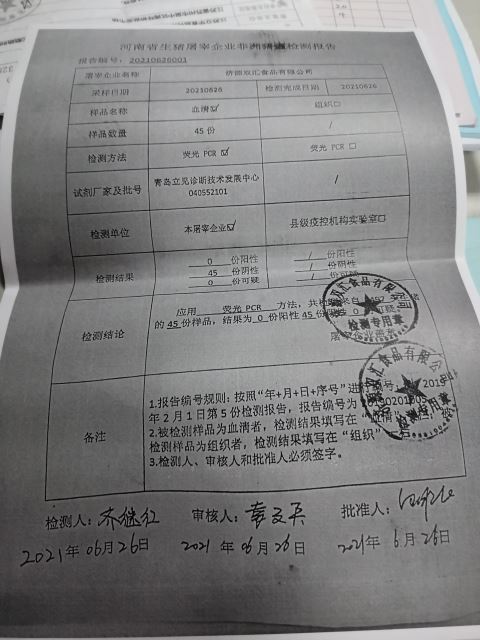 河南省生猪屠宰企业非洲猪瘟检测报告
报告编号：20210626001
屠宰企业名称 济源双汇食品有限公司
采样日期 20210626 检测完成日期 20210626
样品名称 血清☑ 组织☐
样品数量 45 份 /
检测方法 荧光 PCR ☑ 荧光 PCR ☐
试剂厂家及批号 青岛立见诊断技术发展中心 /
040552101
检测单位 本屠宰企业☑ 县级疫控机构实验室☐
检测结果 0 份阳性 / 份阳性
45 份阴性 / 份阴性
0 份可疑 / 份可疑
检测结论 应用 荧光 PCR 方法，共检测来自
的 45 份样品，结果为 0 份阳性 45 份阴性 0 份可疑。
屠宰企业盖章
食品有限公司
检测专用章
双汇食品有限公司
检测专用章
备注 1.报告编号规则：按照“年+月+日+序号”进行编号，如 2019
年 2 月 1 日第 5 份检测报告，报告编号为
2.被检测样品为血清者，检测结果填写在“血清”
检测样品为组织者，检测结果填写在“组织”
3.检测人、审核人和批准人必须签字。
检测人：齐继红 审核人： 批准人：
2021年 06月26日 2021 年 06月26日 2021年 6月26日